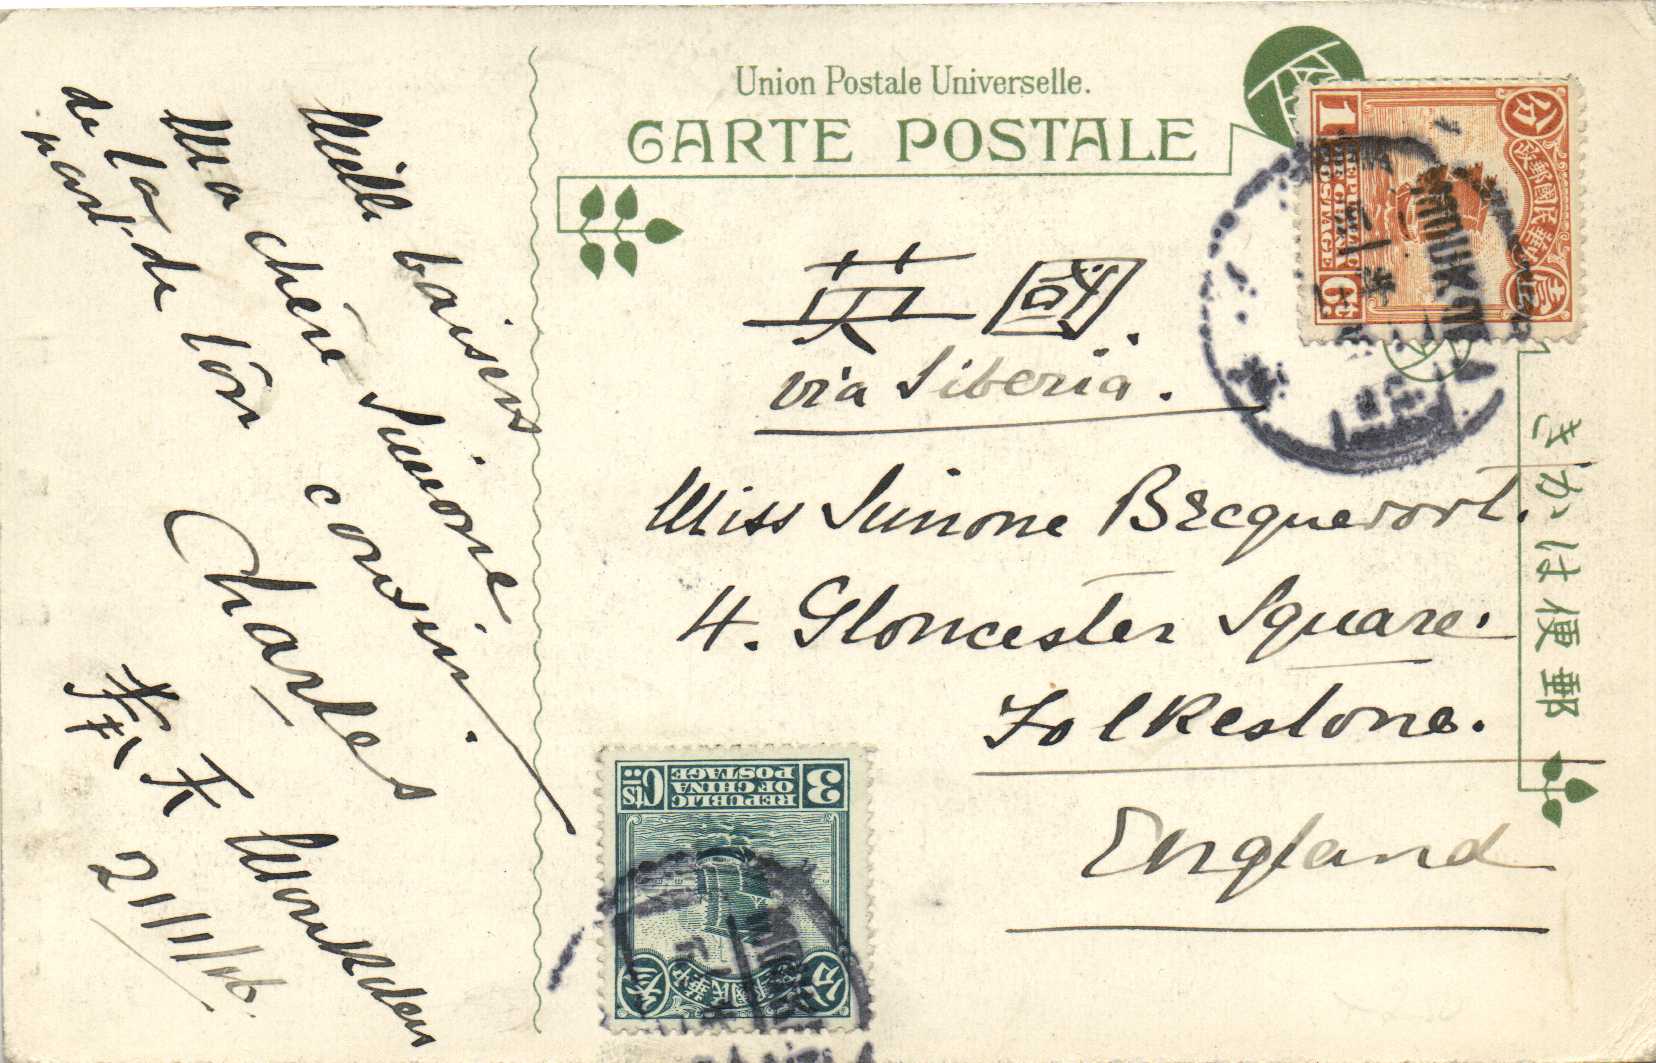 Union Postale Universelle.
CARTE POSTALE
きかは便郵
英國.
via Siberia.
Miss Simone Becquevort.
4. Gloucester Square.
Folkestone.
England
Mille baisers
Ma chère Simone
de la part de ton cousin
Charles
奉天 Moukden
21/1/16
分
局政郵國民華中
壹
1 Ct
REPUBLIC OF CHINA POSTAGE
MOUKDEN
3 Cts
REPUBLIC OF CHINA POSTAGE
分
中華民國郵政局
叁